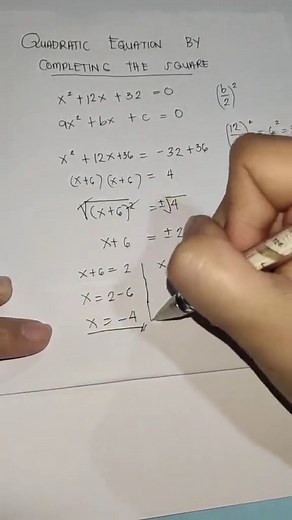 QUADRATIC EQUATION BY
COMPLETING THE SQUARE
x² + 12x + 32 = 0
(b/2)²
ax² + bx + c = 0
x² + 12x + 36 = -32 + 36
(12/2)² = 6² =
(x+6)(x+6) = 4
√(x+6)² = ±√4
x+6 = ±2
x+6 = 2
x
x = 2-6
x = -4